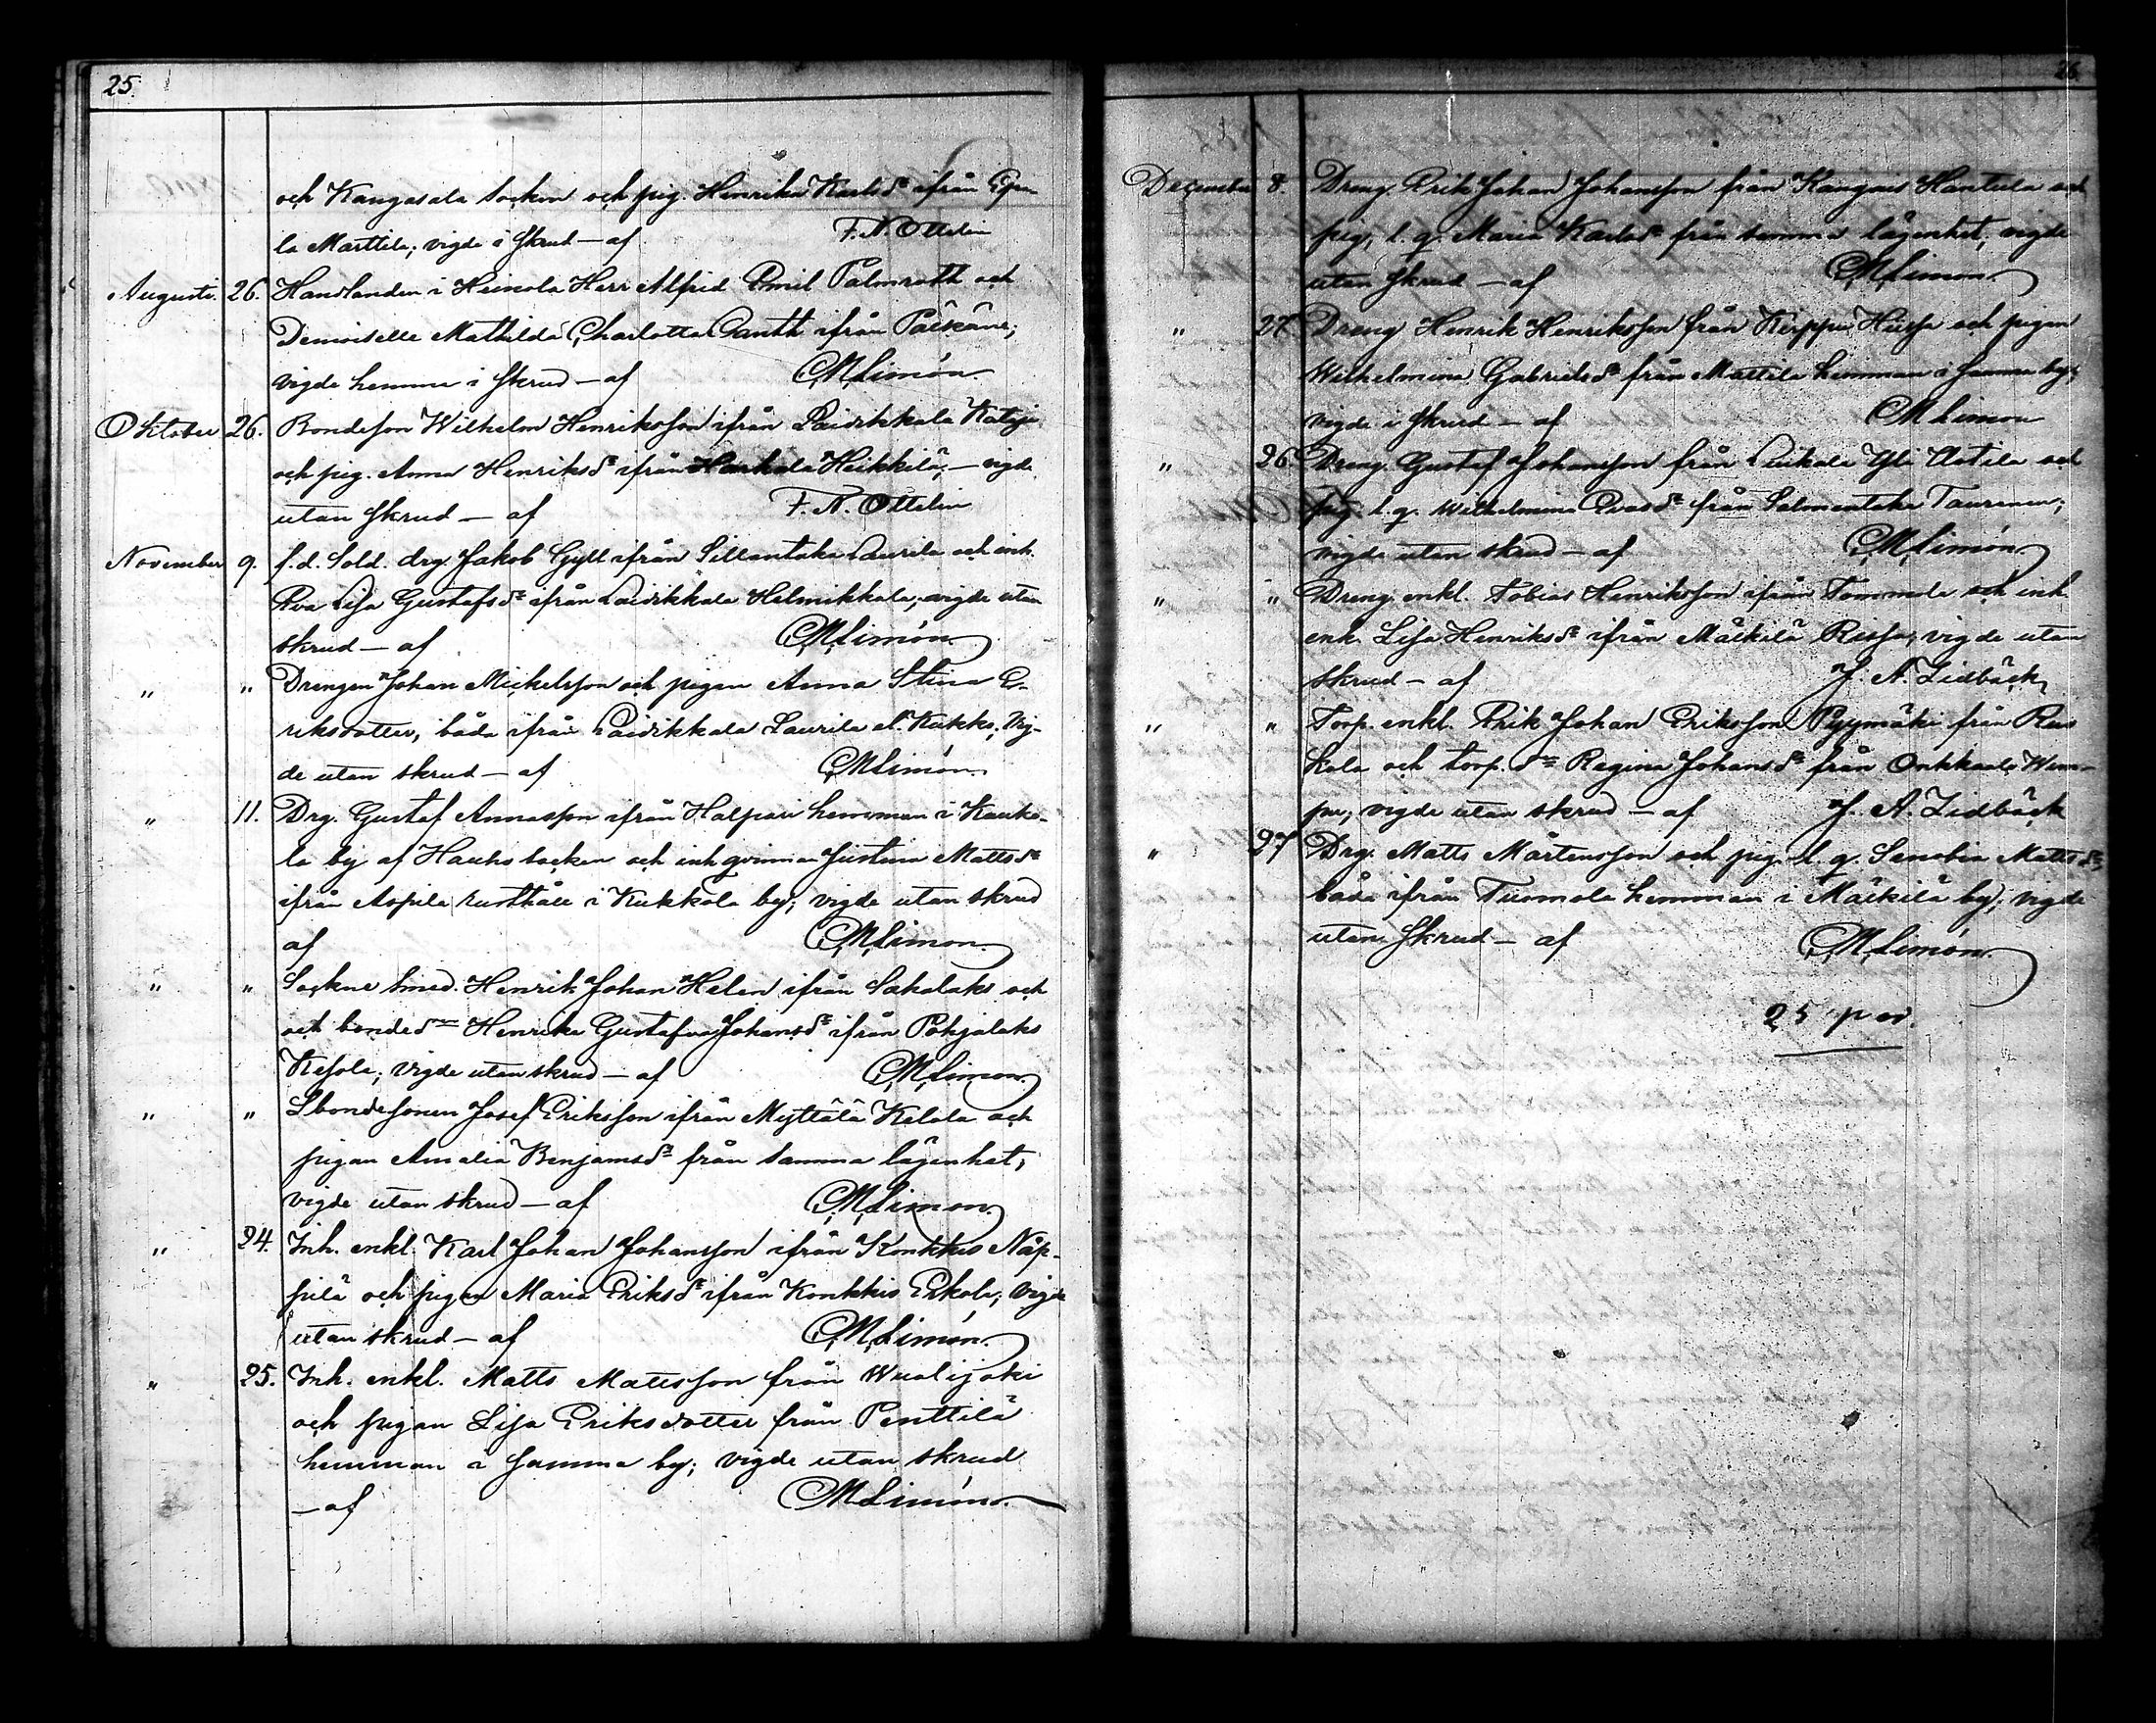 25.
och Kangasala Socken och pig. Henrika Karlsdr ifrån Epa-
la Marttila; vigde i skrud – af F. N. Ottelin
Augusti. 26. Handlanden i Heinola Herr Alfrid Emil Palmroth och
Demoiselle Mathilda Charlotta Canth ifrån Pälkäne;
vigde hemma i skrud – af C. M. Limón
Oktober 26. Bondeson Wilhelm Henriksson ifrån Laidikkala
och pig. Anna Henriksdr ifrån Harhala Heikkilä; – vigde
utan skrud – af F. N. Ottelin
November 9. f.d. Sold. drg. Jakob Gyll ifrån Sillantaka Laurila och inh.
Eva Lisa Gustafsdr ifrån Laidikkala Helmikkala; vigde utan
skrud – af C. M. Limón
" " Drengen Johan Mickelsson och pigan Anna Stina E-
riksdotter, båda ifrån Laidikkala Laurila el. Kukko; vig-
de utan skrud – af C. M. Limón
" 11. Drg. Gustaf Annasson ifrån Halpari hemman i Kauko-
la by af Hauho Socken och inh. qvinnan Justina Mattsdr
ifrån Aspila rusthåll i Kukkola by; vigde utan skrud
af C. M. Limon
" " Sockne smed. Henrik Johan Helen ifrån Sakalaks och
och bonded. Henrika Gustafva Johansdr ifrån Pohjalaks
Kesola; vigde utan skrud – af C. M. Limon
" " Sbondesonen Josef Eriksson ifrån Myttälä Kelola och
pigan Amalia Benjamsdr från samma lägenhet;
vigde utan skrud – af C. M. Limon
" 24. Inh. enkl. Karl Johan Johansson ifrån Konkkis Näp-
pilä och pigan Maria Eriksdr ifrån Konkkis Eskola; vigde
utan skrud – af C. M. Limón
" 25. Inh. enkl. Matts Mattsson från Wualijoki
och pigan Lisa Eriksdotter från Penttilä
hemman i samma by; vigde utan skrud
– af C. M. Limón
26.
December 8. Dreng. Erik Johan Johansson från Kangais Hantula och
pig. l. q. Maria Karlsdr från samma lägenhet; vigde
utan skrud – af C. M. Limon
" 27. Dreng Henrik Henriksson från Kirppu Hirsa och pigan
Wilhelmina Gabrielsdr från Mattila hemman i samma by;
vigde i skrud – af C. M. Limon
" 26. Dreng. Gustaf Johansson från Luikala Yli Astila och
pig. l. q. Wilhelmina Evasdr från Salmentaka Taurinen;
vigde utan skrud – af C. M. Limón
" " Dreng enkl. Tobias Henriksson ifrån Tommola och inh.
enk. Lisa Henriksdr ifrån Mälkilä Rissa; vigde utan
skrud – af J. A. Lidbäck
" " Torp. enkl. Erik Johan Eriksson Pyymäki från Rau
kola och torp. dr Regina Johansdr från Onkkaala Wem-
pu; vigde utan skrud – af J. A. Lidbäck
" 27 Drg. Matts Mårtensson och pig. l. q. Senobia Mattsdr,
båda ifrån Tuomola hemman i Mälkilä by; vigde
utan skrud – af C. M. Limón
25 par.